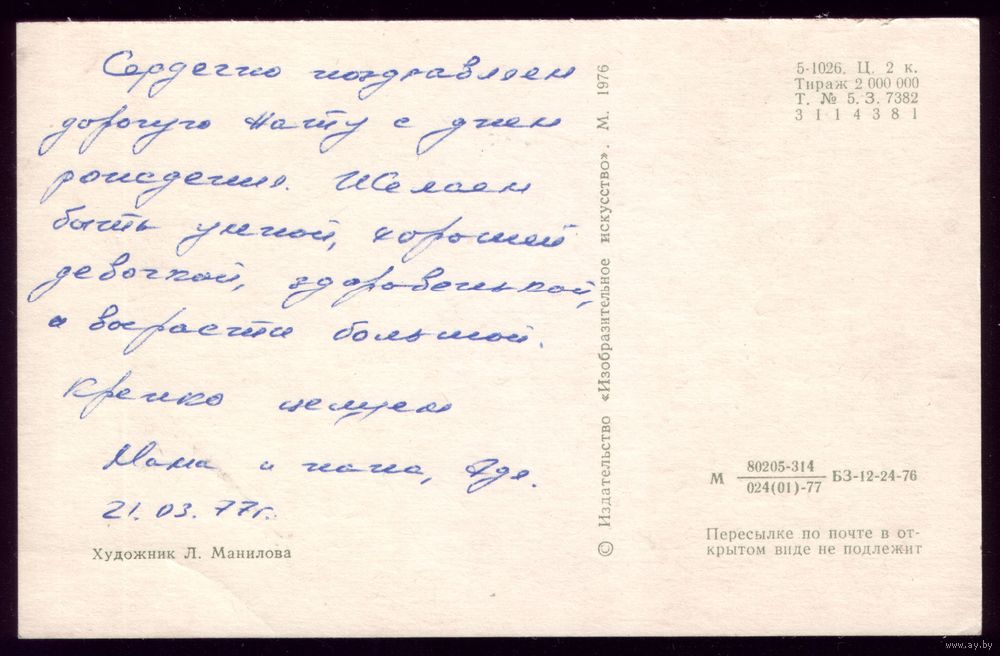 Сердечно поздравляем
дорогую Нату с днем
рождения. Желаем
быть умной, хорошей
девочкой, здоровенькой,
и вырасти большой.
Крепко целуем
Мама и папа,
21.03.77г.
Художник Л. Манилова
© Издательство «Изобразительное искусство». М. 1976
5-1026. Ц. 2 к.
Тираж 2 000 000
Т. № 5. З. 7382
3114381
М 80205-314 БЗ-12-24-76
024(01)-77
Пересылке по почте в от-
крытом виде не подлежит
www.ay.by